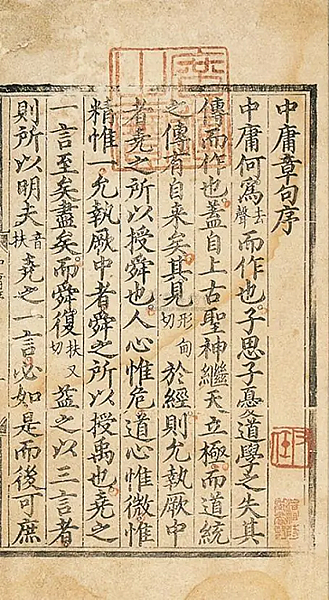 中庸章句序
中庸何爲去聲而作也子思子憂道學之失其
傳而作也蓋自上古聖神繼天立極而道統
之傳有自来矣其見形甸切於經則允執厥中
者堯之所以授舜也人心惟危道心惟微惟
精惟一允執厥中者舜之所以授禹也堯之
一言至矣盡矣而舜復扶又切益之以三言者
則所以明夫音扶堯之一言必如是而後可庶